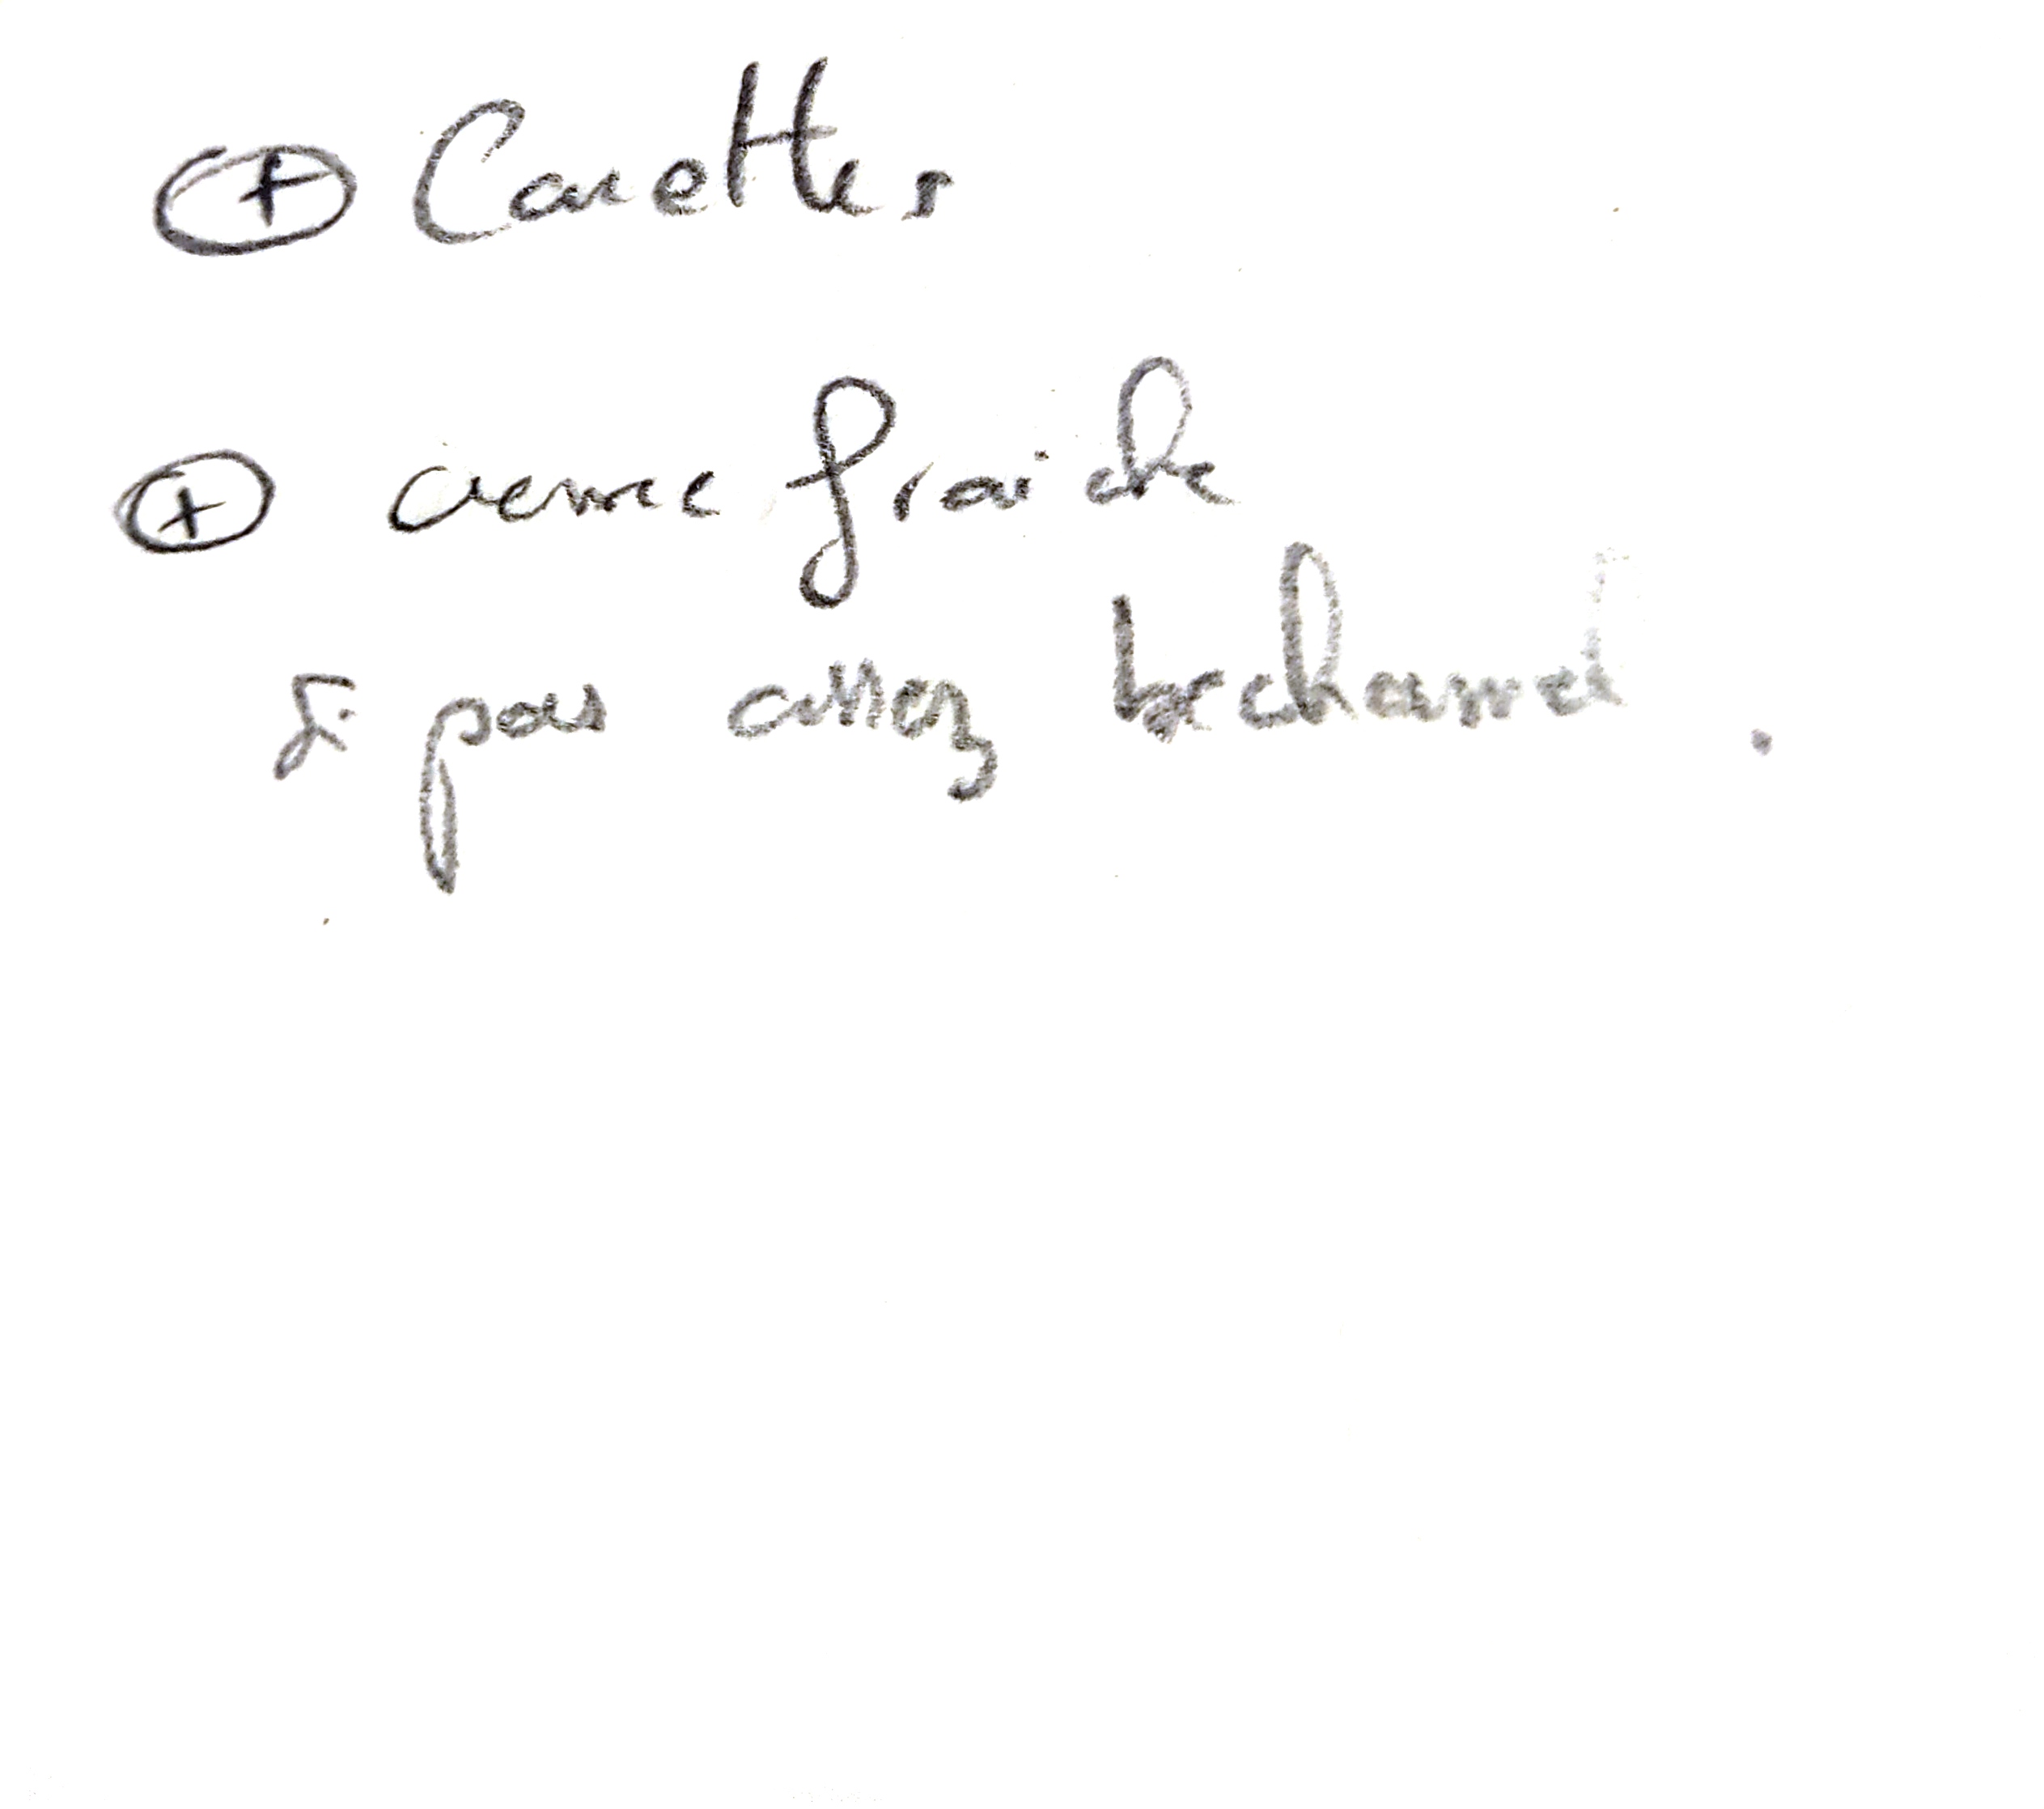 ⊕ Carettes
⊕ creme fraiche
si pas assez bechamel.